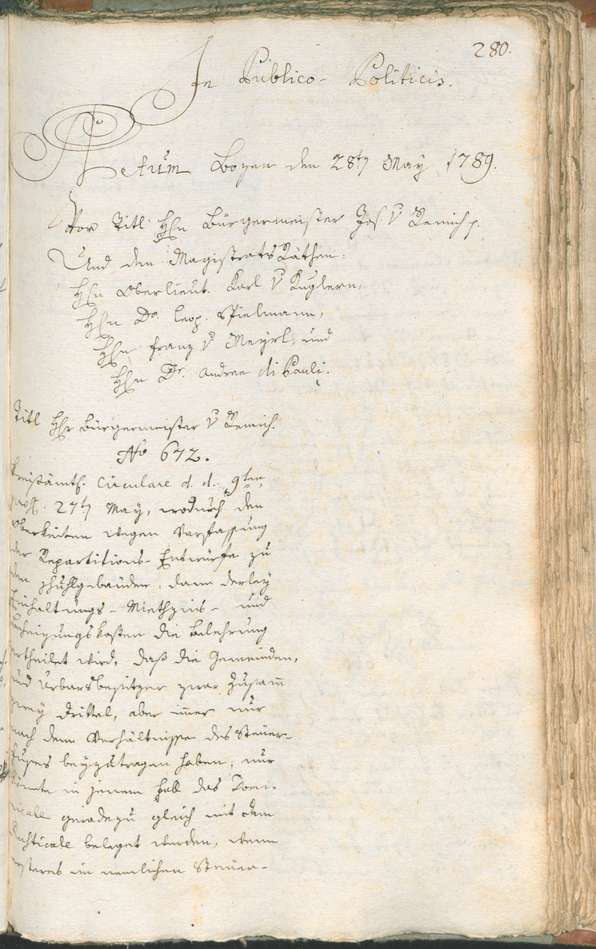 280.
In Publico-Politicis.
Actum Bozen den 28t May 1789.
Vor Titl: Hhn Bürgermeister Jos. v Remich p.
Und den Magistrats Räthen:
Hhn Oberlieut. Karl v Kuglern,
Hhn Dr Leop. Spielmann,
Hhn Franz v Meyrl, und
Hhn Dr. Andree di Pauli.
Titl Hhr Bürgermeister v Remich.
No 672.
Kreisämtl. Circulare d. d. 9ten,
27t May, wodurch den
Obrkeiten wegen Verfassung
der Repartitions-Entwürfe zu
den Schullgebäuden, dann derley
Einhaltungs- Miethzins- und
Beheizungs kosten die Belehrung
ertheilet wird, daß die Gemeinden,
und Urbarsbesitzer zwar zusam
zwey Drittel, aber imer nur
nach dem Verhältnisse des Steuer-
fußes beyzutragen haben; nur
könnte in jenem Fall das Domi-
nicale geradezu gleich mit dem
Rusticale beleget werden, wenn
ersteres im nemlichen Steuer-